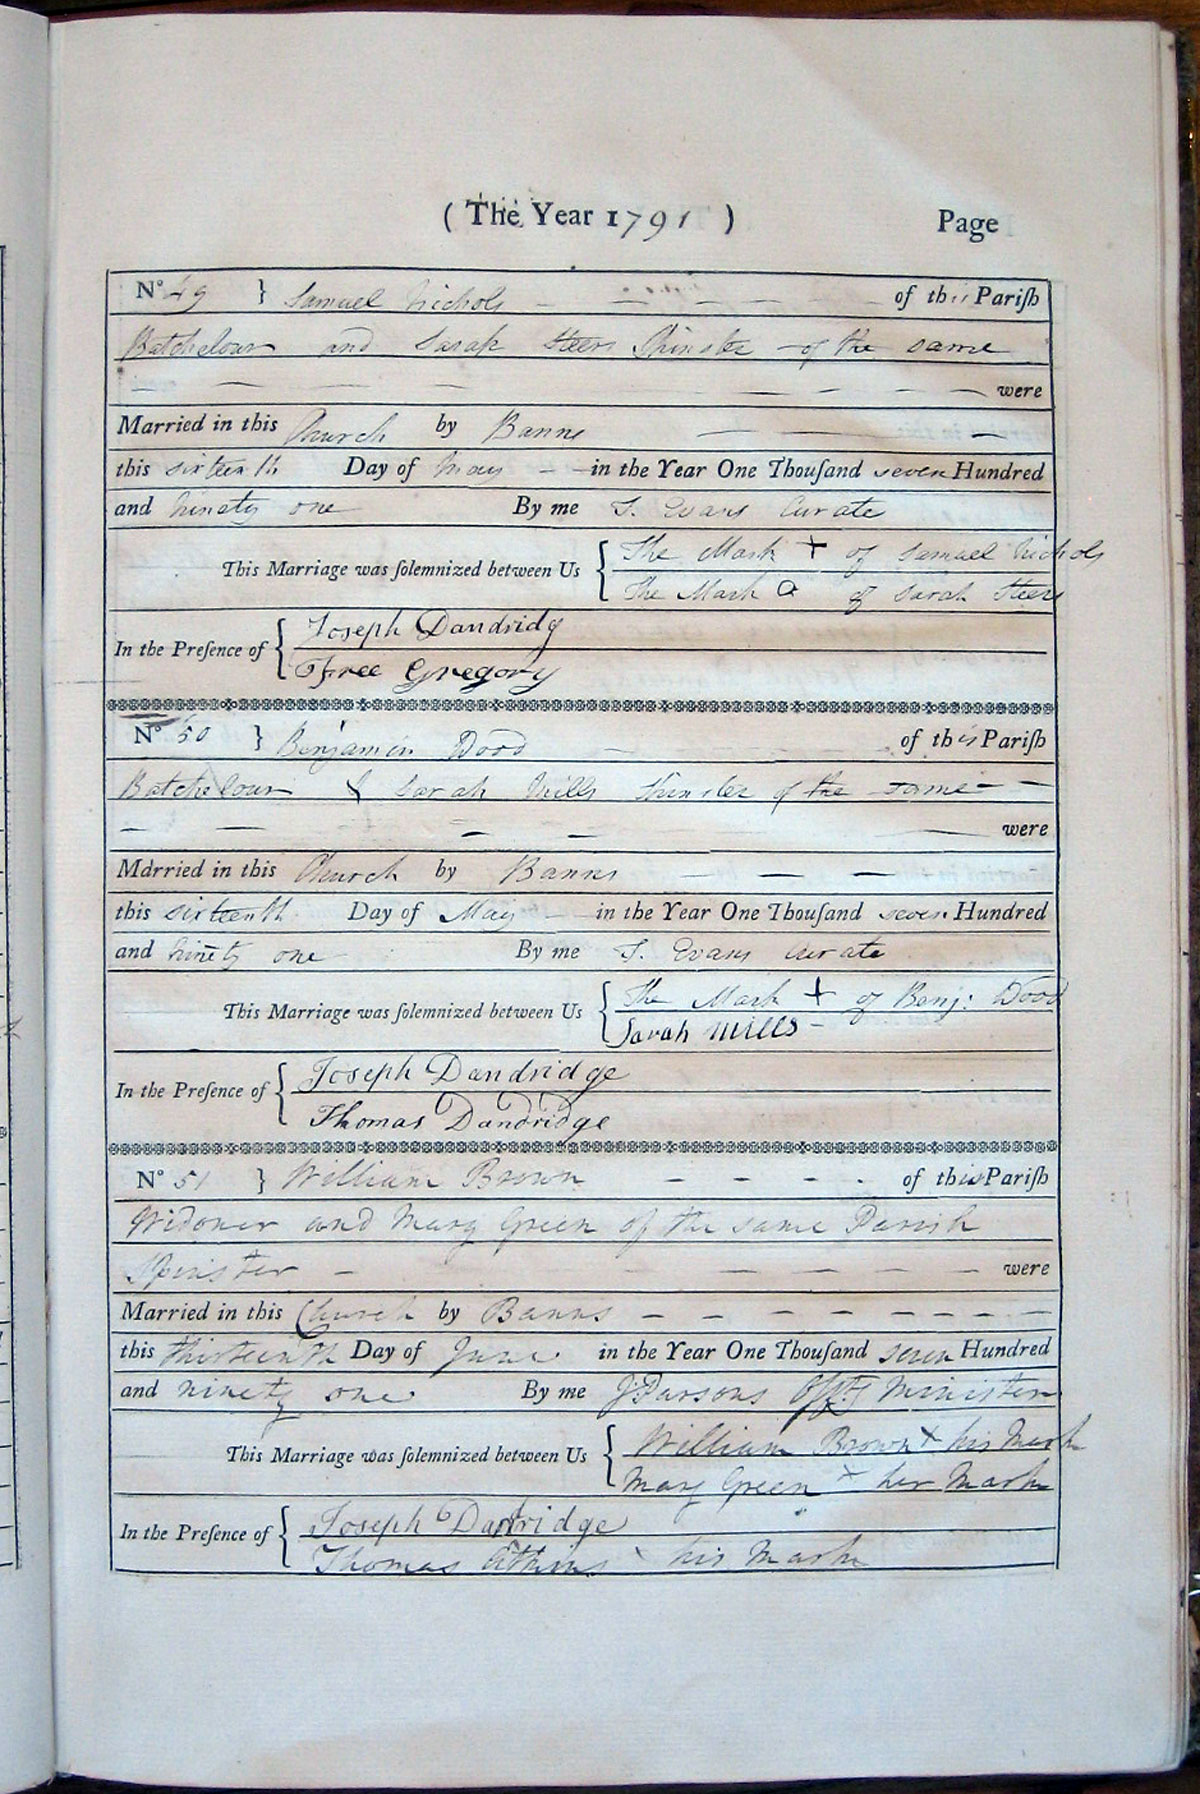 ( The Year 1791 ) Page
No 49 } Samuel Nichols of this Pariſh
Batchelour and Sarah Steers Spinster of the same
were
Married in this Church by Banns
this sixteenth Day of May in the Year One Thouſand seven Hundred
and ninety one By me T. Evans Curate
This Marriage was ſolemnized between Us { The Mark + of Samuel Nichols
The Mark O of Sarah Steers
In the Preſence of { Joseph Dandridg
Free Gregory
No 50 } Benjamin Dood of this Pariſh
Batchelour & Sarah Mills Spinster of the same
were
Married in this Church by Banns
this sixteenth Day of May in the Year One Thouſand seven Hundred
and ninety one By me T. Evans Curate
This Marriage was ſolemnized between Us { The Mark + of Benj: Dood
Sarah Mills
In the Preſence of { Joseph Dandridge
Thomas Dandridge
No 51 } William Brown of this Pariſh
Widower and Mary Green of the same Parish
Spinster were
Married in this Church by Banns
this thirteenth Day of June in the Year One Thouſand seven Hundred
and ninety one By me J: Parsons Offg Minister
This Marriage was ſolemnized between Us { William Brown x his Mark
Mary Green x her Mark
In the Preſence of { Joseph Dandridge
Thomas Atkins x his Mark